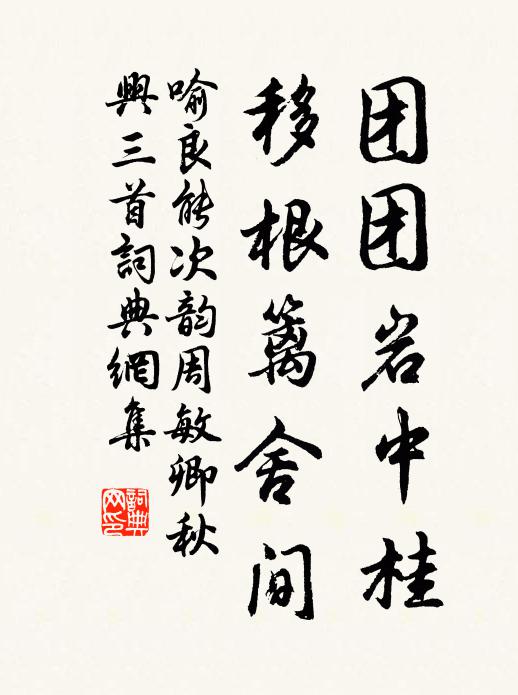 团团岩中桂
移根篱舍间
喻良能次韵周敏卿秋
興三首詞典網集
詞典網印